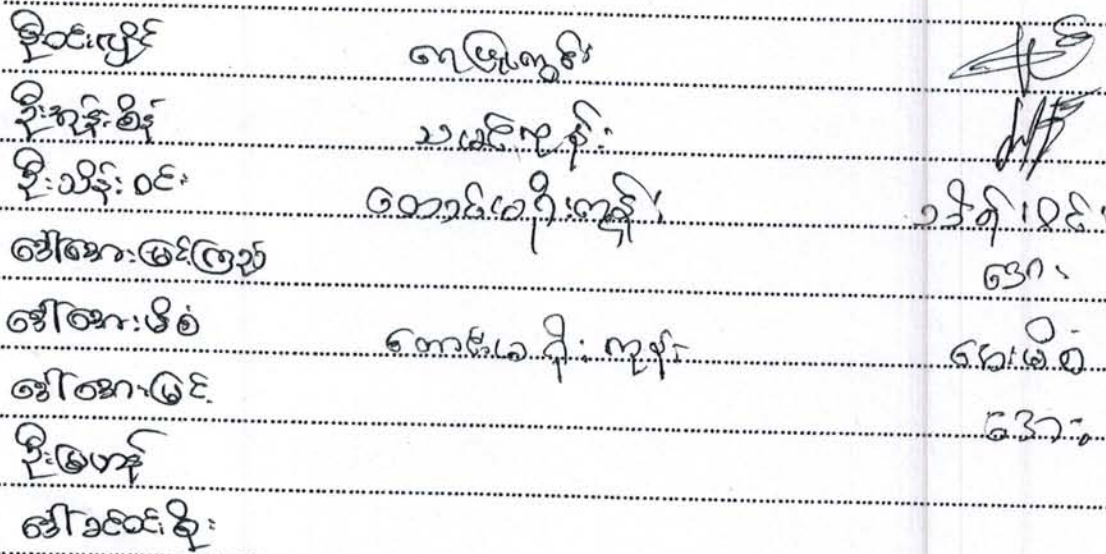 ဦးဝင်းလှိုင် ရေဖြူကွင်း
ဦးထွန်းစိန် သမင်ကုန်း
ဦးသိန်းဝင်း တောင်မရိုးကုန်း သိန်းဝင်း
ဒေါ်အေးမြင့်ကြည် အေး
ဒေါ်အေးမိစံ တောင်မရိုးကုန်း အေးမိစံ
ဒေါ်အေးမြင့် အေး
ဦးမြဟန်
ဒေါ်ခင်ဝင်းစိုး